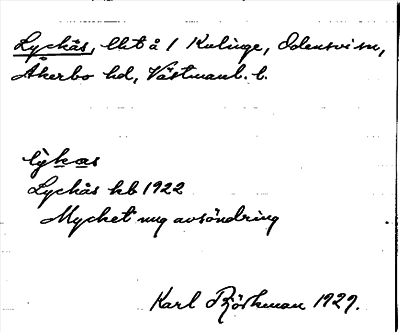 Lyckås, llt å 1 Kulinge, Odensvi sn,
Åkerbo hd, Västmanl. l.
lỳkas
Lyckås kb 1922
Mycket ung avsöndring
Karl Björkman 1929.